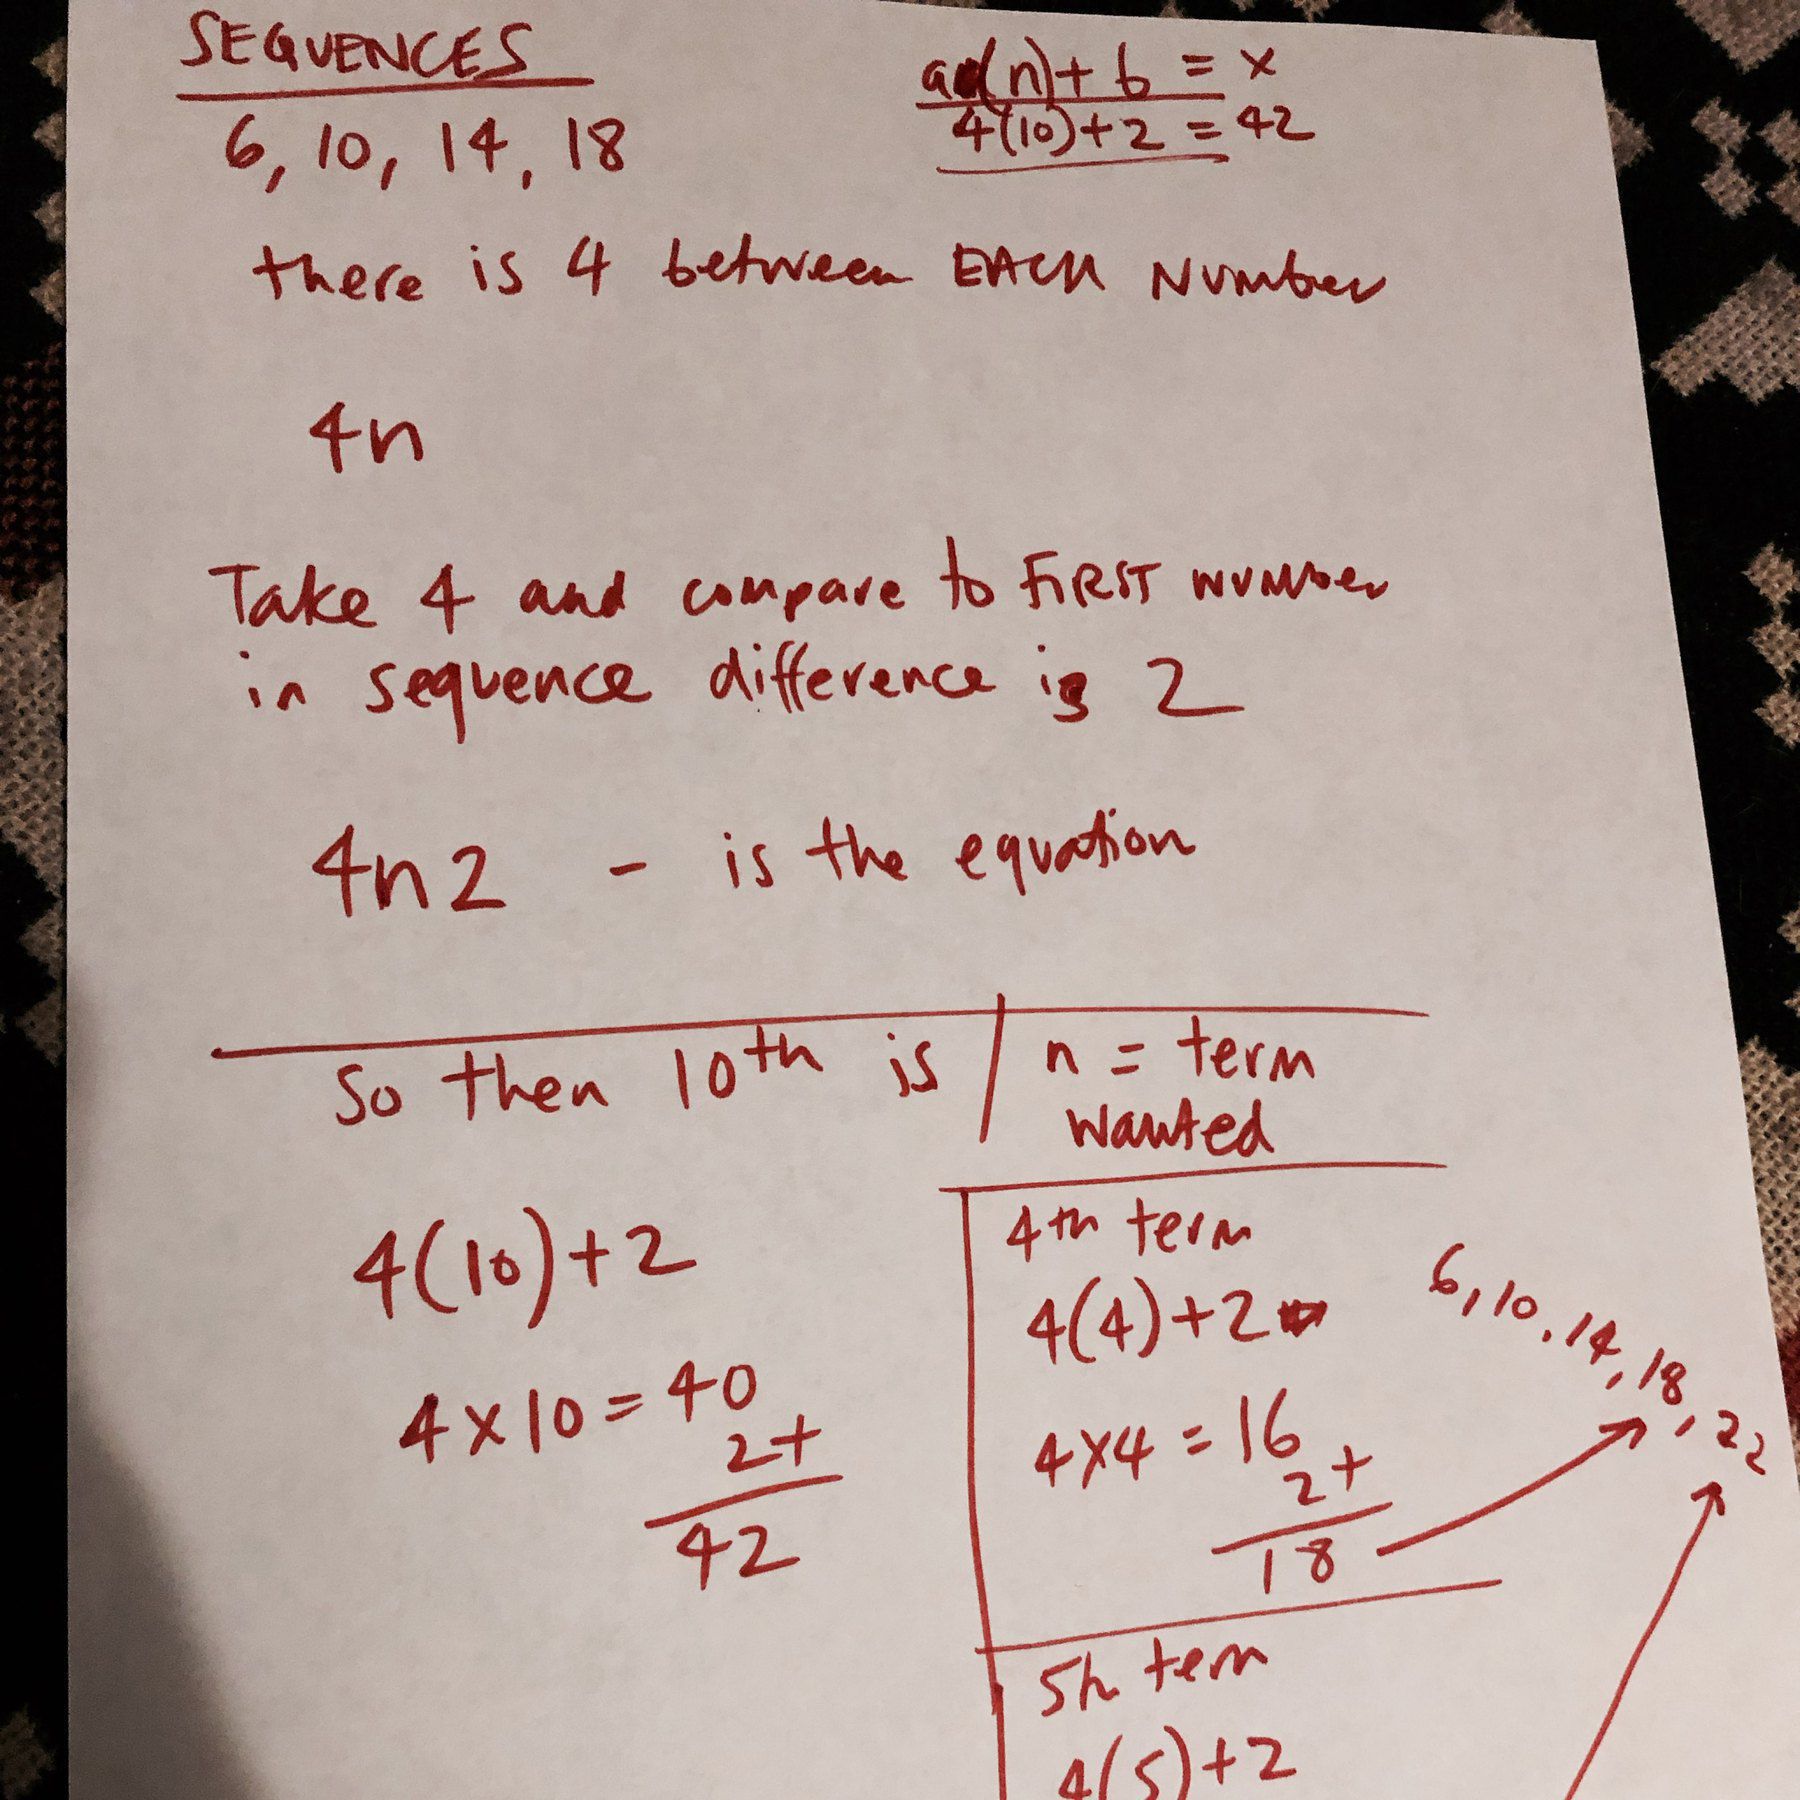 SEQUENCES
6, 10, 14, 18
a(n)+b = x
4(10)+2 = 42
there is 4 between EACH NUMber
4n
Take 4 and compare to FIRST NUMber
in sequence difference is 2
4n2 - is the equation
So then 10th is
n = term
wanted
4(10)+2
4x10=40
2+
42
4th term
4(4)+2
4x4=16
2+
18
6, 10, 14, 18, 22
5h term
4(5)+2